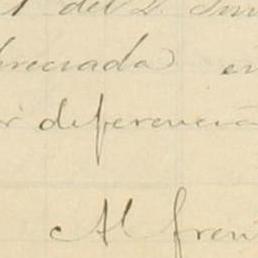 del D.
preciada en
diferencia
Al fren